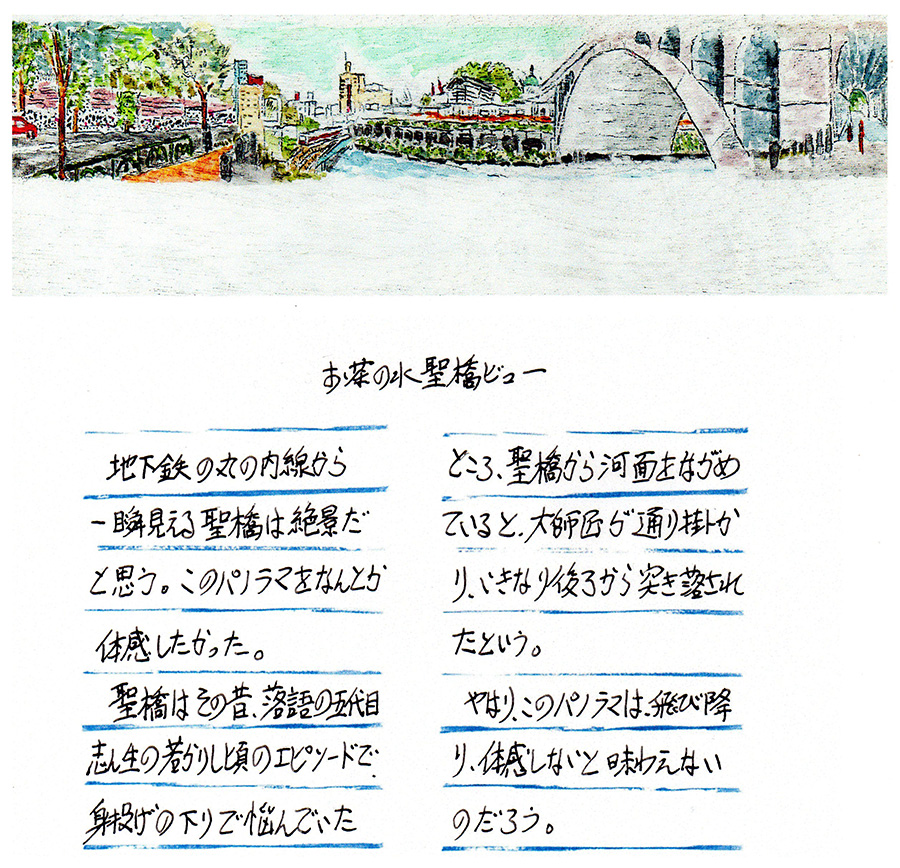 お茶の水聖橋ビュー
地下鉄の丸の内線から
一瞬見える聖橋は絶景だ
と思う。このパノラマをなんとか
体感したかった。
聖橋はその昔、落語の五代目
志ん生の若かりし頃のエピソードで、
身投げの下りで悩んでいた
ところ、聖橋から河面をながめ
ていると、大師匠が通り掛か
り、いきなり後ろから突き落され
たという。
やはり、このパノラマは、飛び降
り、体感しないと味わえない
のだろう。